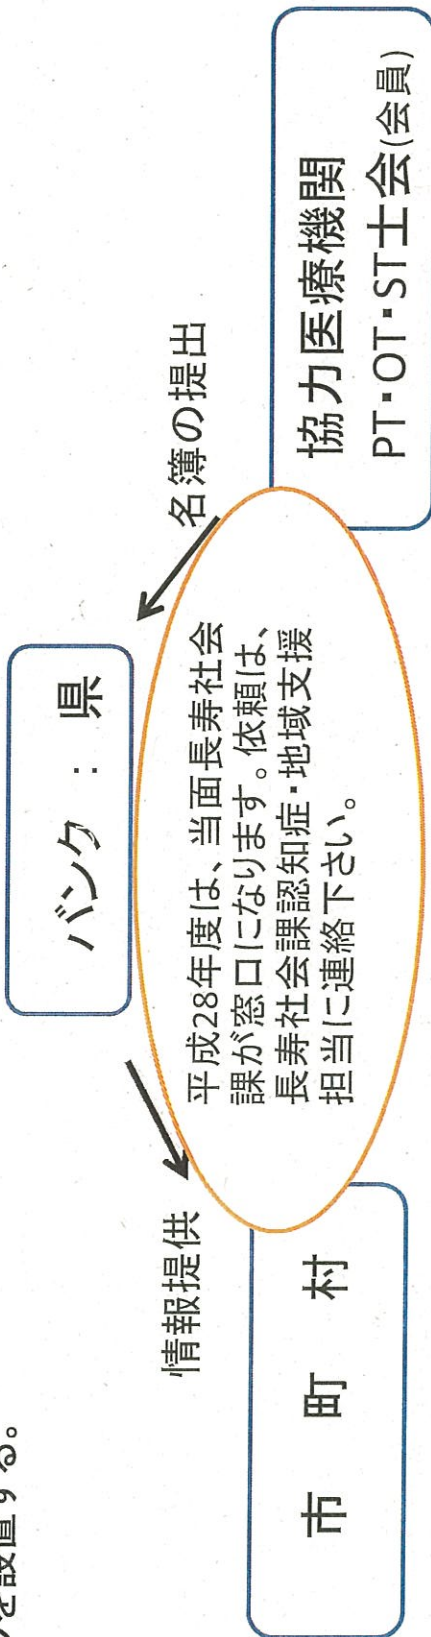 を設置する。
バンク : 県
情報提供
名簿の提出
平成28年度は、当面長寿社会
課が窓口になります。依頼は、
長寿社会課認知症・地域支援
担当に連絡下さい。
市 町 村
協力医療機関
PT・OT・ST士会(会員)